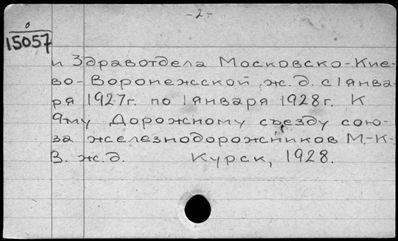 -2-
0
15057
и Здравотдела Московско-Кие-
во-Воронежской ж.д. с 1 янва-
ря 1927г. по 1 января 1928г. К
9му Дорожному съезду сою-
за железнодорожников М.-К-
В. ж.д. Курск, 1928.